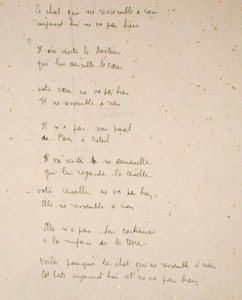 Le chat qui ne ressemble à rien
aujourd'hui ne va pas bien
Il va visiter le Docteur
qui lui ausculte le cœur
votre cœur ne va pas bien
Il ne ressemble à rien
Il n'a pas son pareil
de Paris à Créteil
Il va visiter sa demoiselle
qui lui regarde la cervelle
votre cervelle ne va pas bien
Elle ne ressemble à rien
Elle n'a pas son contraire
à la surface de la terre
Voilà pourquoi le chat qui ne ressemble à rien
est triste aujourd'hui et ne va pas bien